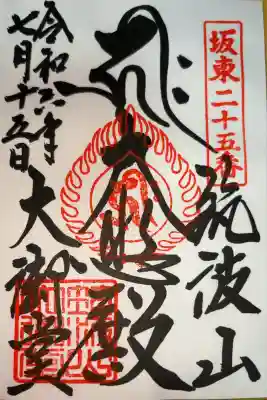 坂東二十五番
筑波山
大悲殿
大御堂
令和六年
七月十五日